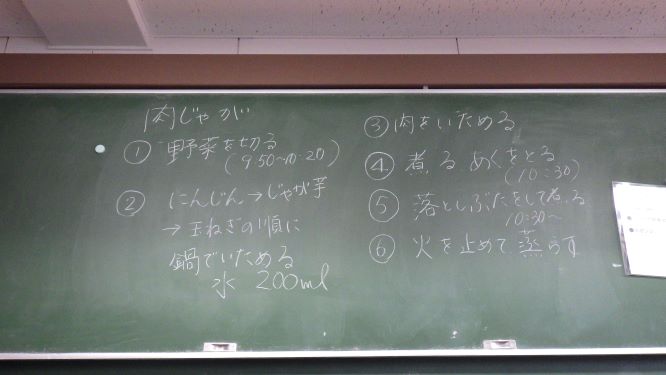 肉じゃが
① 野菜を切る
(9:50~10:20)
② にんじん→じゃが芋
→玉ねぎの順に
鍋でいためる
水 200ml
③ 肉をいためる
④ 煮る あくをとる
(10:30)
⑤ 落としぶたをして煮る
10:30~
⑥ 火を止めて蒸らす